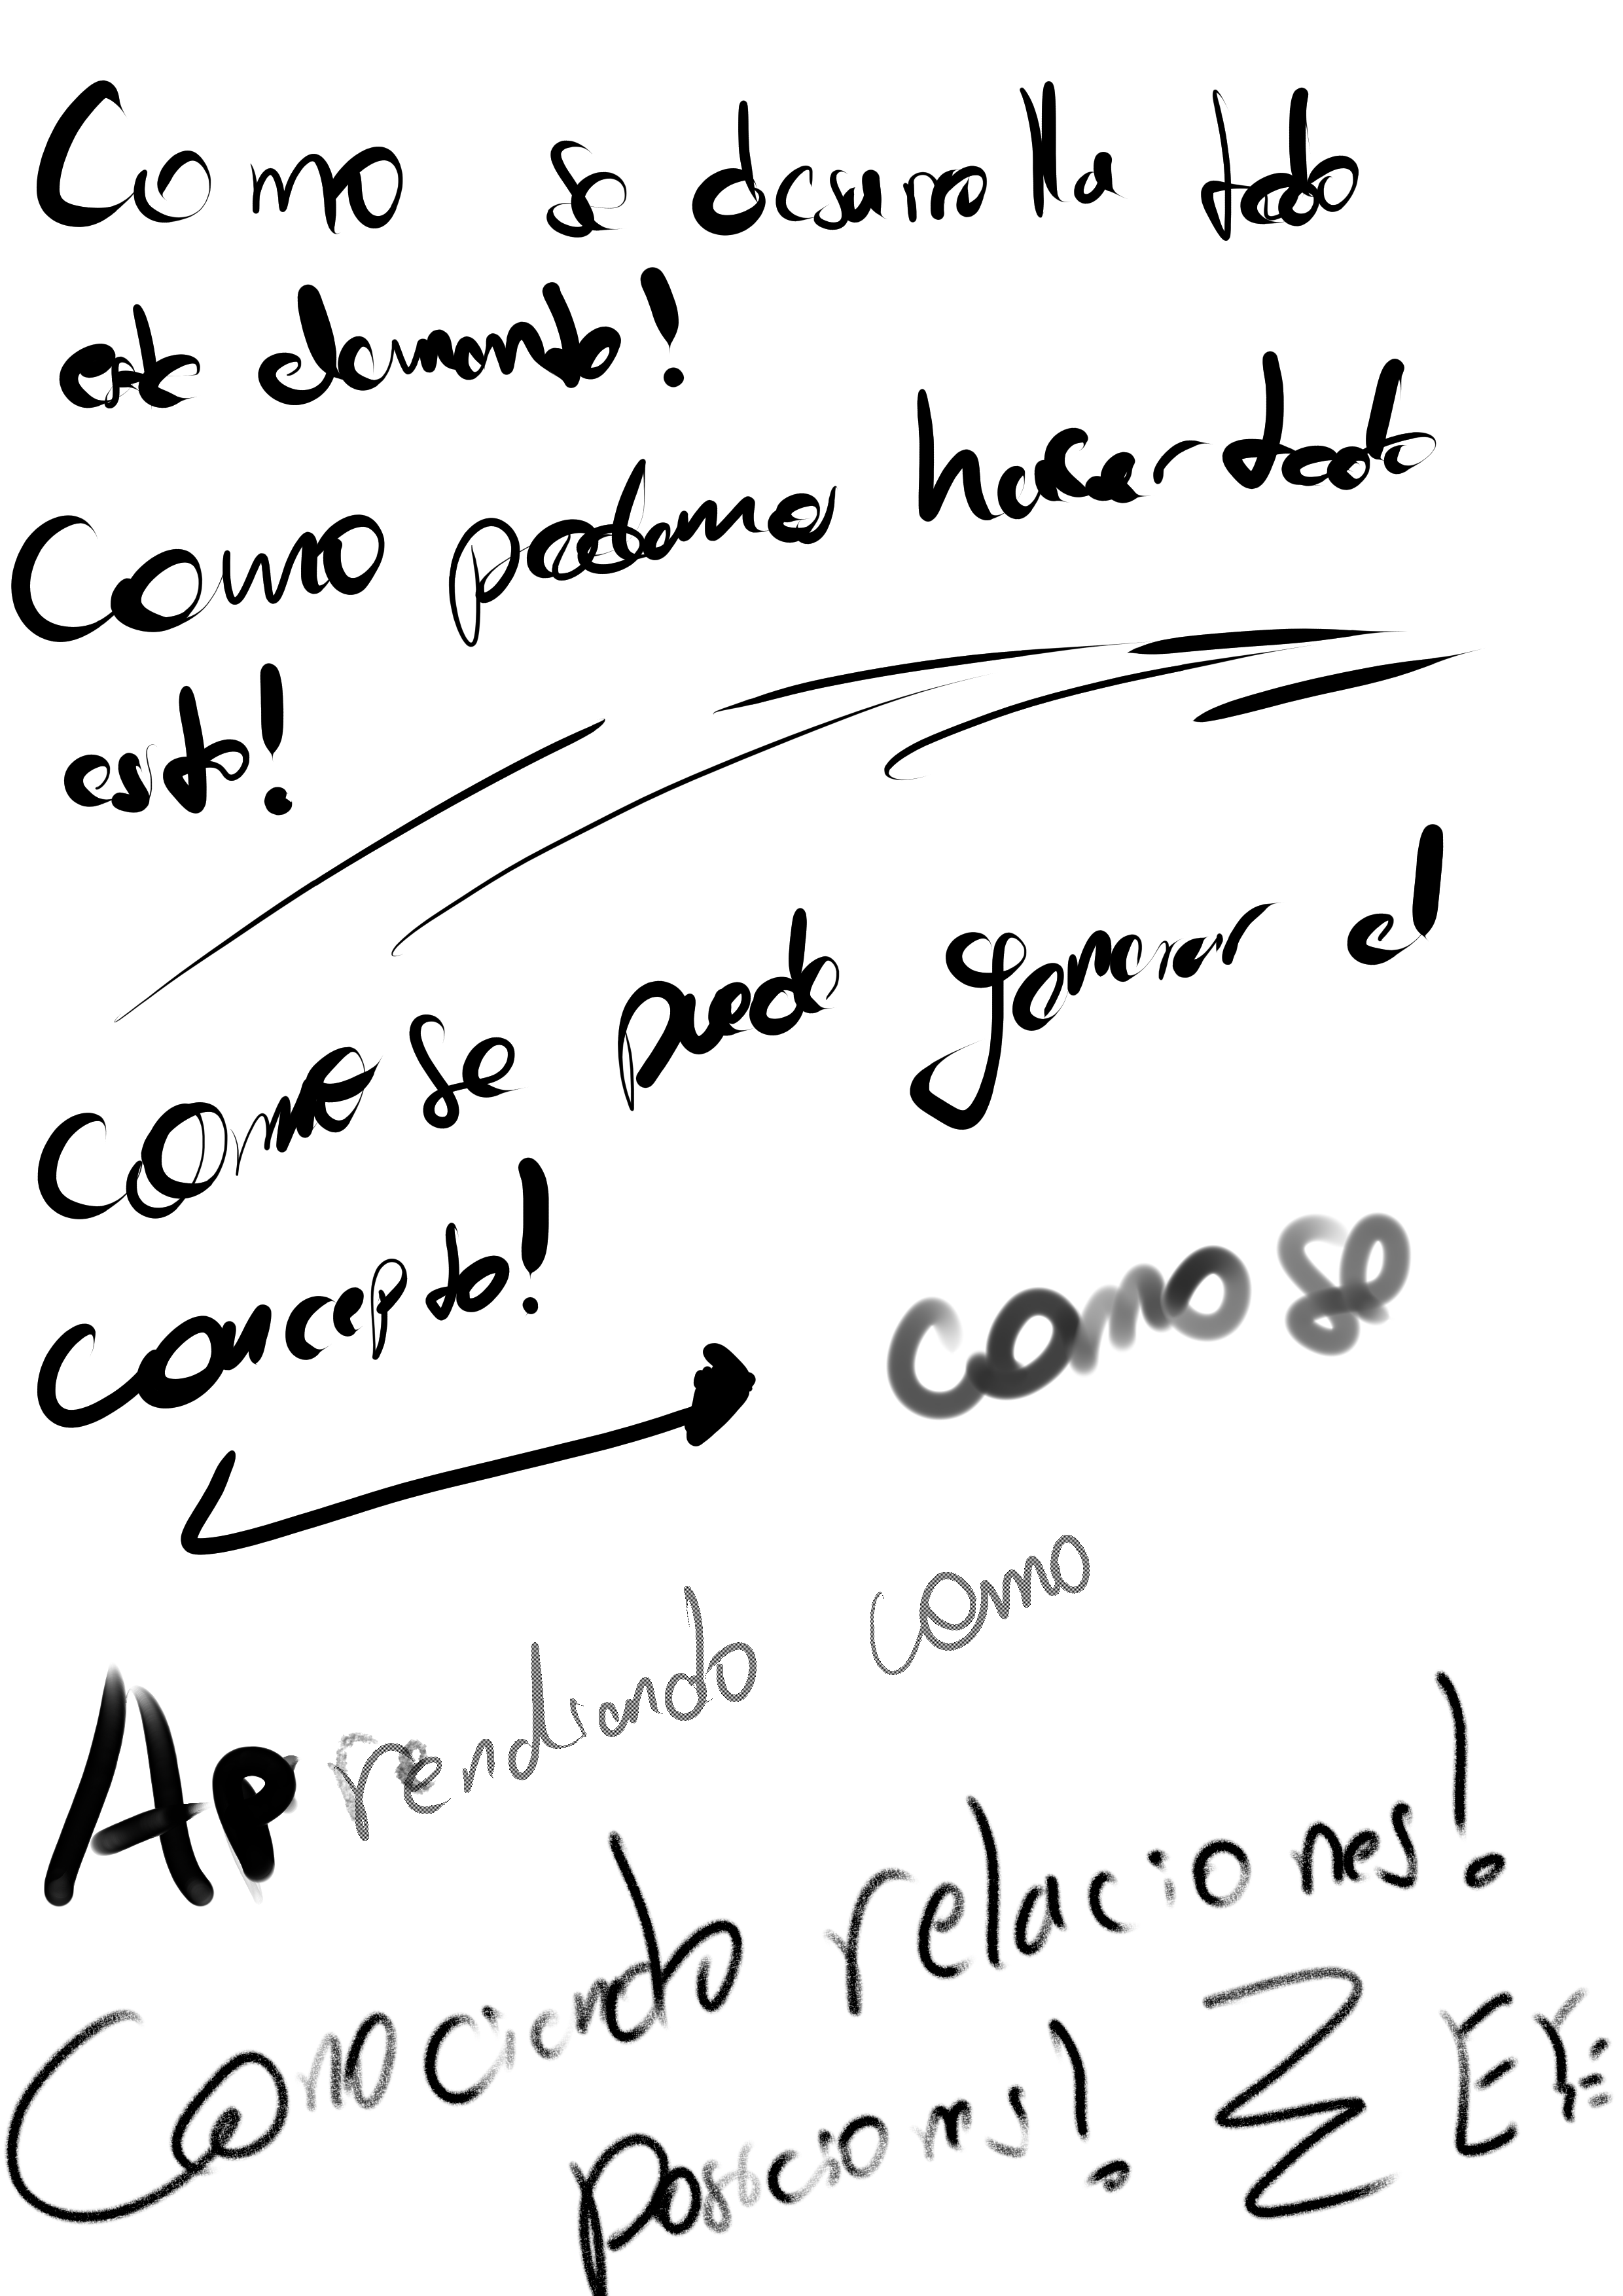 Como se desarrolla todo
este elemento!
Como podemos hacer todo
esto!
Como se puede generar el
concepto!
como se
Aprendiendo como
Conociendo relaciones!
posiciones!